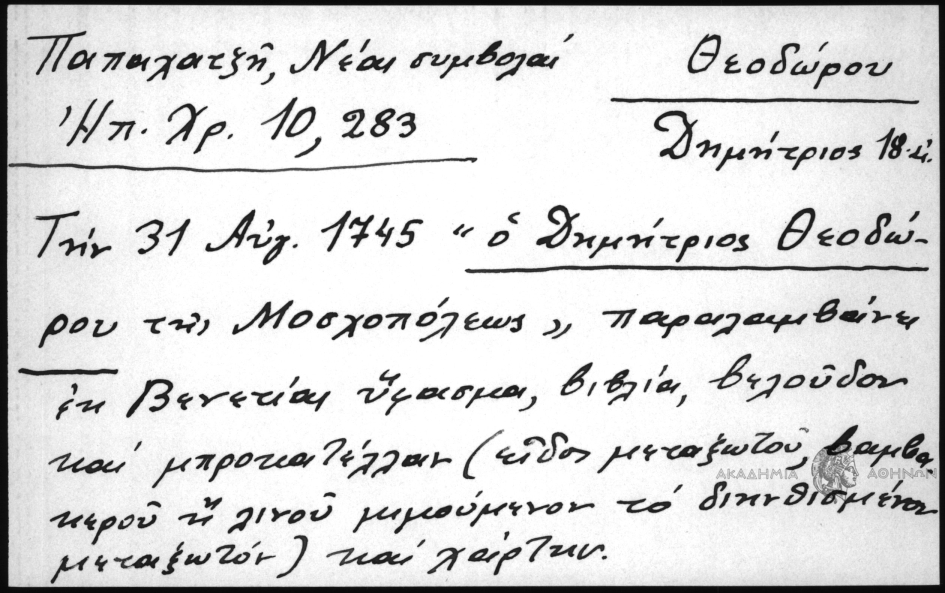 Παπαχατζῆ, Νέαι συμβολαί
Ἠπ. Χρ. 10, 283
Θεοδώρου
Δημήτριος 18.αἰ.
Τήν 31 Αὐγ. 1745 "ὁ Δημήτριος Θεοδώ-
ρου τῆς Μοσχοπόλεως" παραλαμβάνει
ἐκ Βενετίας ὕφασμα, βιβλία, βελοῦδον
καί μπροκατέλλαν (εἶδος μεταξωτοῦ, βαμβα
κεροῦ ἤ λινοῦ μιμούμενον τό διηνθισμένον
μεταξωτόν) καί χάρτην.
ΑΚΑΔΗΜΙΑ ΑΘΗΝΩΝ